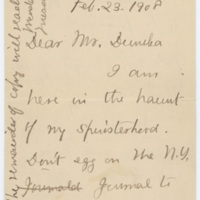 Feb. 23. 1908
Dear Mr.
I am
here in the haunt
of my Spinsterhood.
Don't egg on the N.Y.
Journal to
the remainder of copy will reach